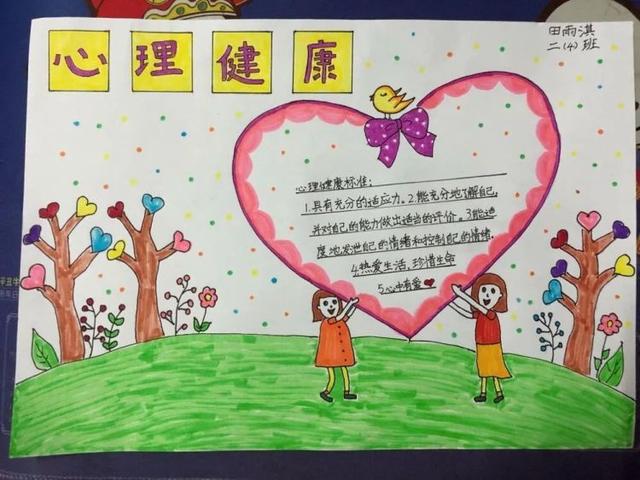 心理健康
田雨淇
二(4)班
心理健康标准:
1.具有充分的适应力。2.能充分地了解自己,
并对自己的能力做出适当的评价。3.能适
度地发泄自己的情绪和控制自己的情绪。
4.热爱生活、珍惜生命
5.心中有爱